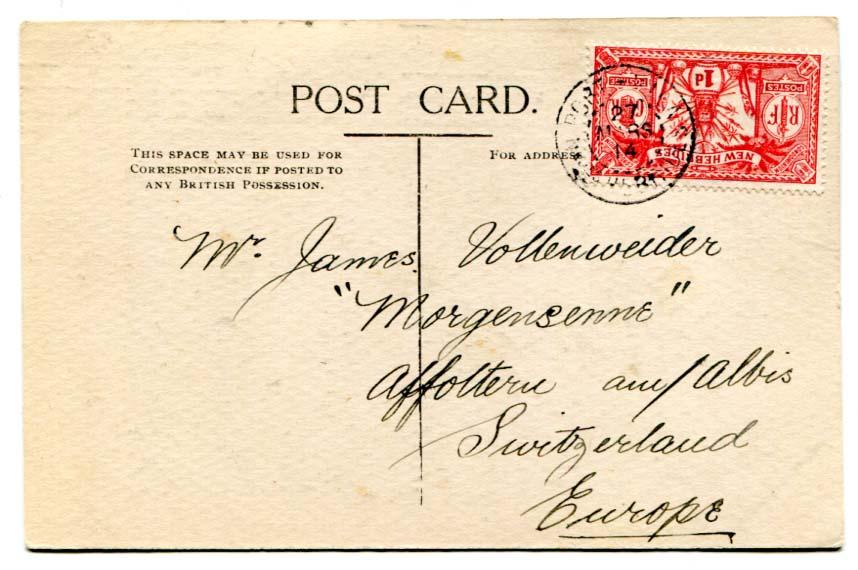 POST CARD.
THIS SPACE MAY BE USED FOR
CORRESPONDENCE IF POSTED TO
ANY BRITISH POSSESSION.
FOR ADDRESS
1d
POSTAGE
POSTES
R F
NEW HEBRIDES
27
MARS
14
Mr. James Vollenweider
"Morgensenne"
Affoltern am/Albis
Switzerland
Europe